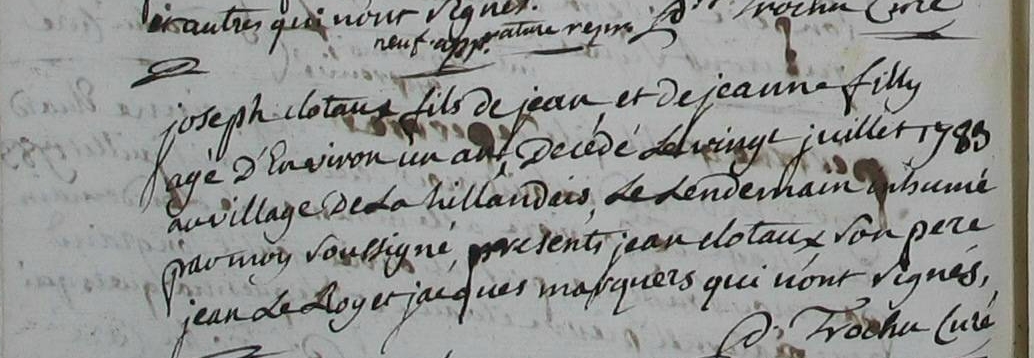 et autres qui n'ont signés.
neuf. app. rature repr. D. Trochu Curé
joseph clotaux fils de jean et de jeanne filly
agé d'Environ un ans, Decédé Le vingt juillet 1783
au village De La hillandais, Le Lendemain inhumé
par moy soussigné, presents jean clotaux son pere
jean Le Roy et jacques marquers qui n'ont signés,
D. Trochu Curé